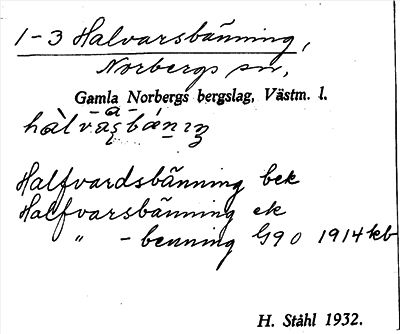 1-3 Halvarsbänning,
Norbergs sn,
Gamla Norbergs bergslag, Västm. l.
Halfvardsbänning bek
Halfvarsbänning ek
" - benning G90 1914 kb
H. Ståhl 1932.